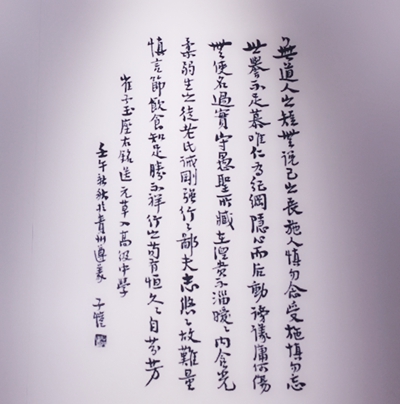 無道人之短無說己之長施人慎勿念受施慎勿忘
世譽不足慕唯仁為紀綱隱心而后動謗議庸何傷
無使名過實守愚聖所臧在涅貴不淄曖〻內含光
柔弱生之徒老氏誡剛強行〻鄙夫志悠〻故難量
慎言節飲食知足勝不祥行之苟有恒久〻自芬芳
崔子玉座右銘送元草入高級中學
壬午新秋於貴州遵義 子愷